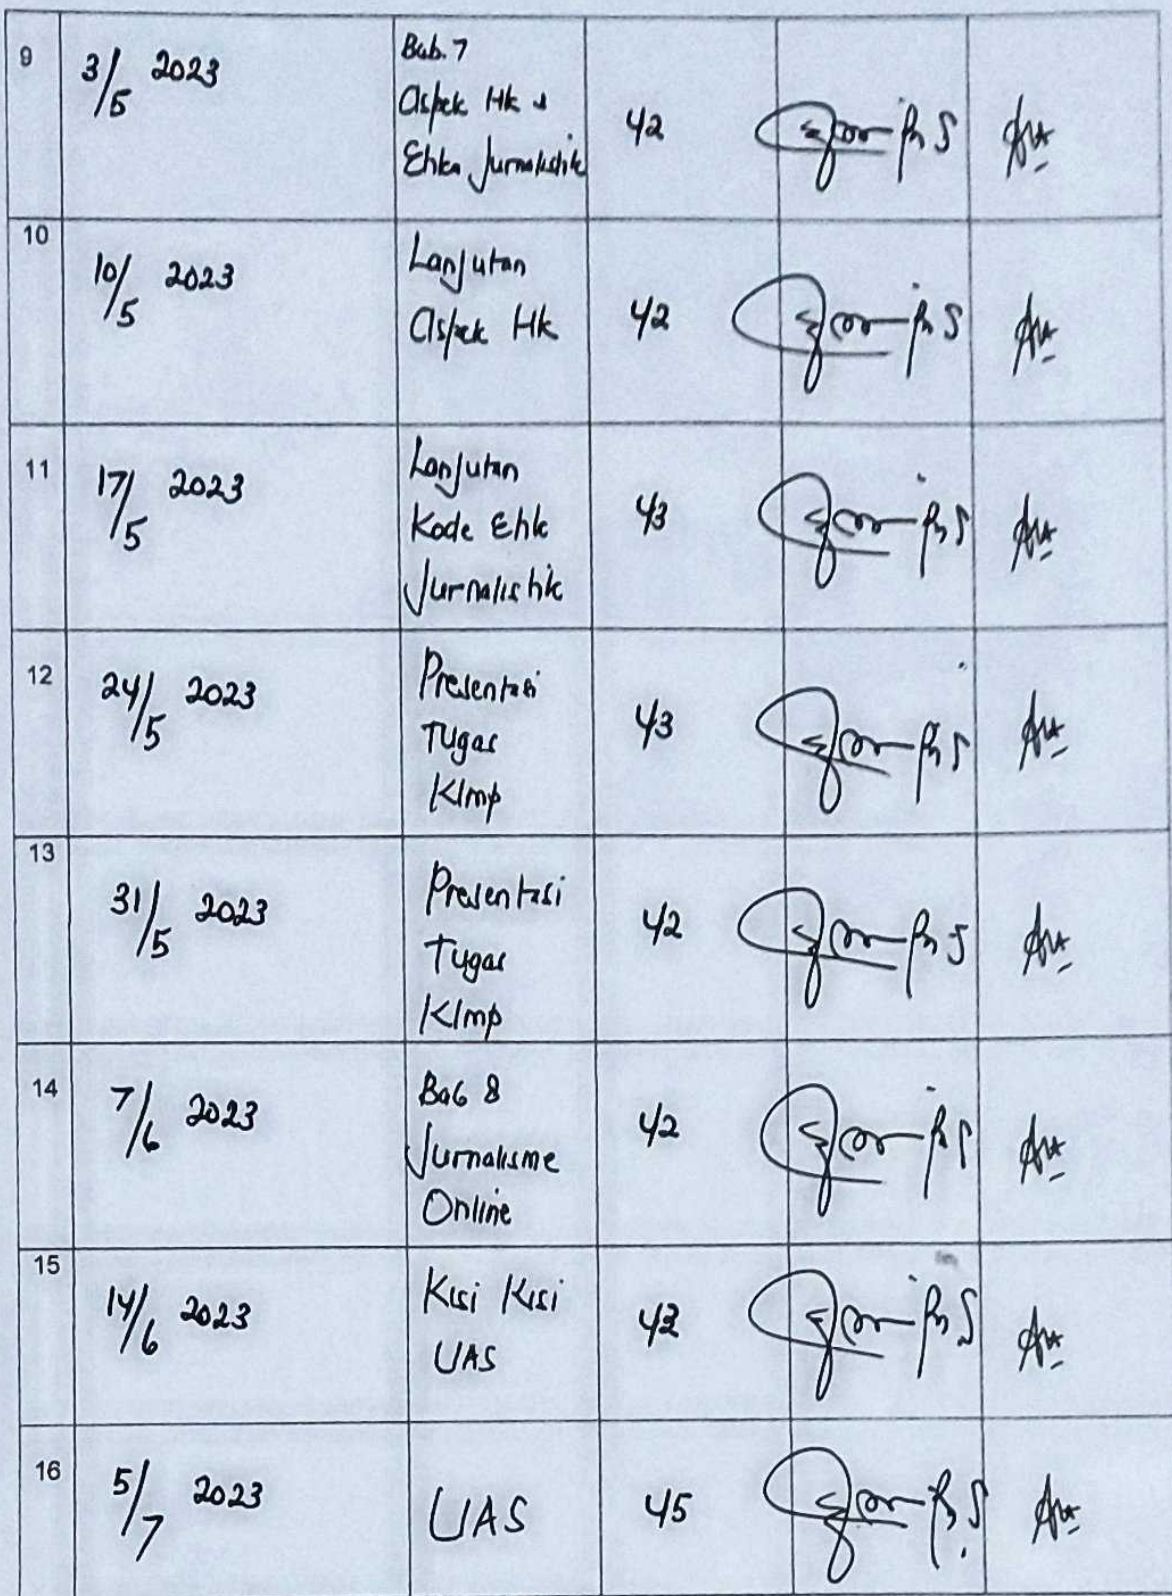 9
3/5 2023
Bab. 7
Aspek Hk &
Etika Jurnalistik
42
10
10/5 2023
Lanjutan
Aspek Hk
42
11
17/5 2023
Lanjutan
Kode Etik
Jurnalistik
43
12
24/5 2023
Presentasi
Tugas
Klmp
43
13
31/5 2023
Presentasi
Tugas
Klmp
42
14
7/6 2023
Bab 8
Jurnalisme
Online
42
15
14/6 2023
Kisi Kisi
UAS
16
5/7 2023
UAS
45